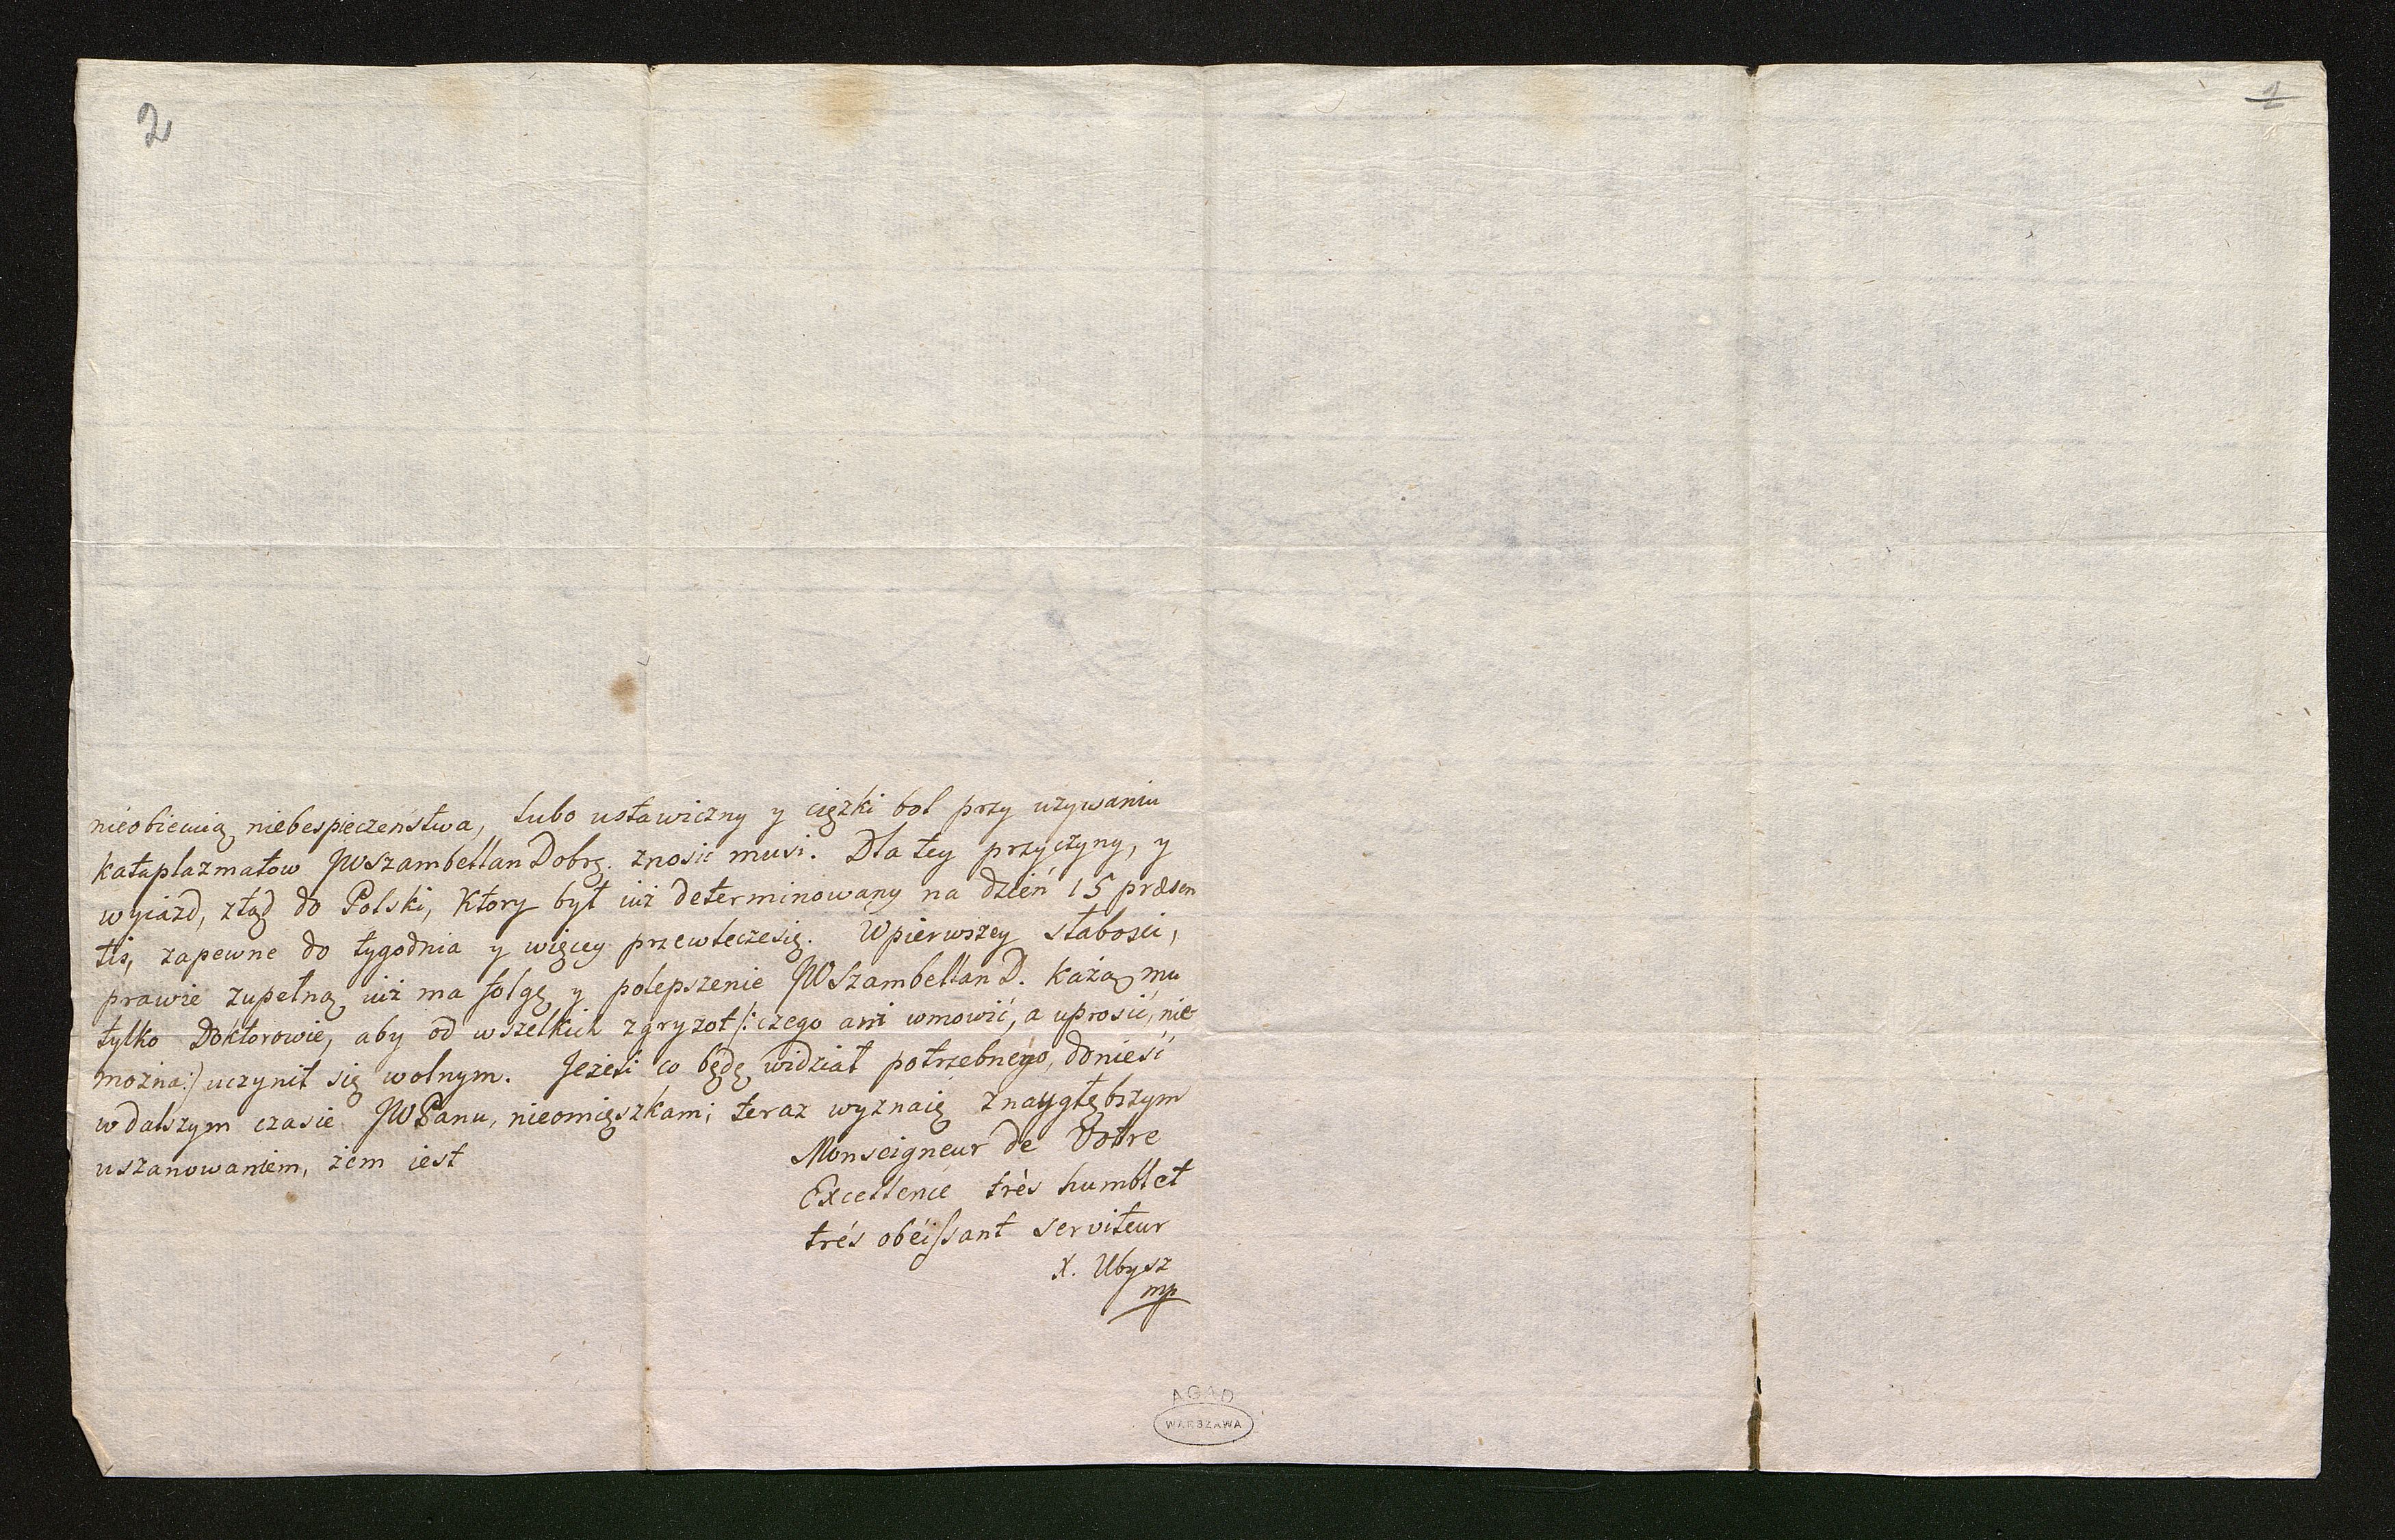 2
1
nieobiecuią niebespieczenstwa, lubo ustawiczny y cięzki bol przy uzywaniu
kataplazmatow JWSzambellan Dobrg. znosic musi. Dla tey przyczyny, y
wyiazd, ztąd do Polski, ktory był iuż determinowany na dzień 15 præsen
tis, zapewne do tygodnia y więcey przewleczesię. W pierwszey słabości,
prawie zupełną iuż ma folgę y polepszenie JWSzambellan D. każą mu
tylko Doktorowie, aby od wszelkich zgryzot /: czego ani wmowić, a uprosić, nie
można :/ uczynił się wolnym. Jeżeli co będę widział potrzebnego, donieść
w dalszym czasie JWPanu, nieomięszkam; teraz wyznaię znaygłębszym
uszanowaniem, żem iest
Monseigneur de Votre
Excellence très humblet
trés obéissant serviteur
X. Ubysz
mp
AGAD
WARSZAWA